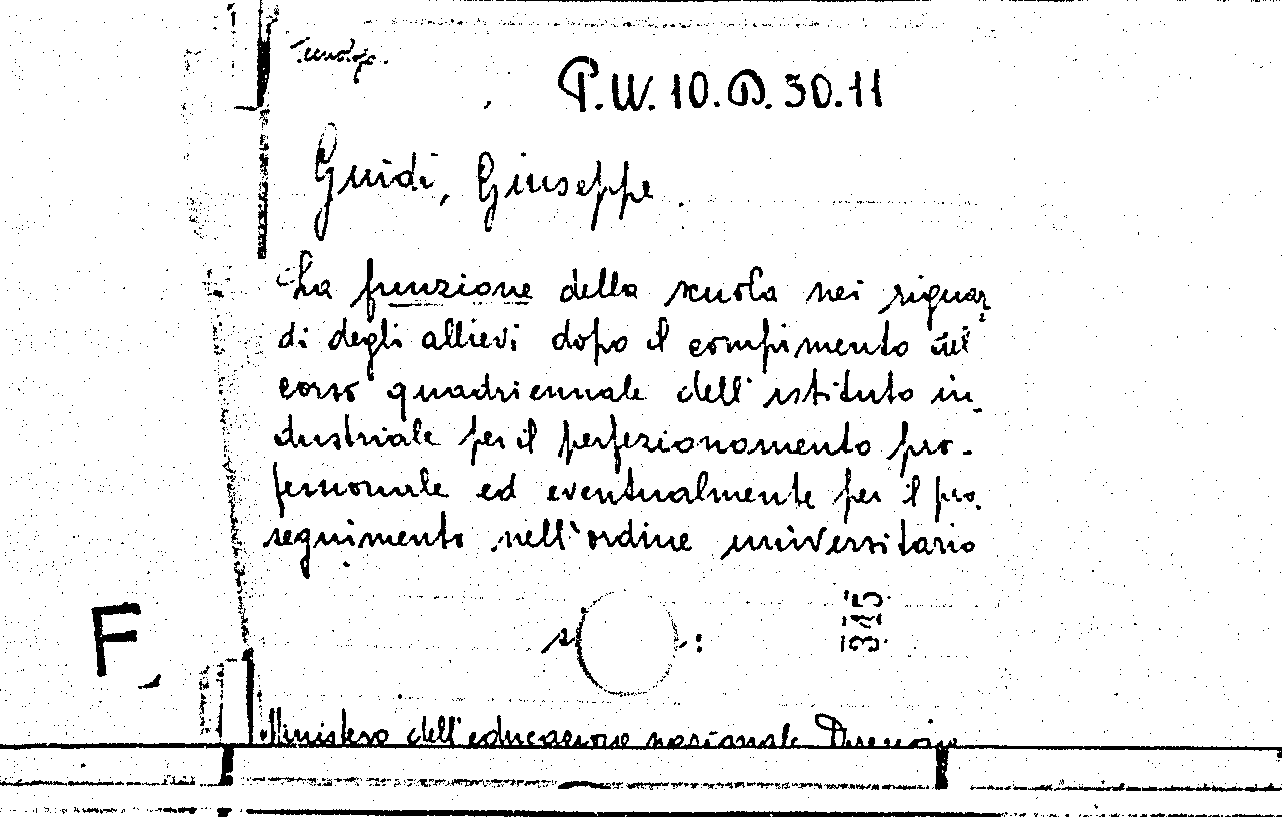 P.W.10.D.30.11
Guidi, Giuseppe.
La funzione della scuola nei riguar
di degli allievi dopo il compimento del
corso quadriennale dell'istituto in-
dustriale per il perfezionamento pro-
fessionale ed eventualmente per il pro-
seguimento nell'ordine universitario
345
F
Ministero dell'educazione nazionale Direzione